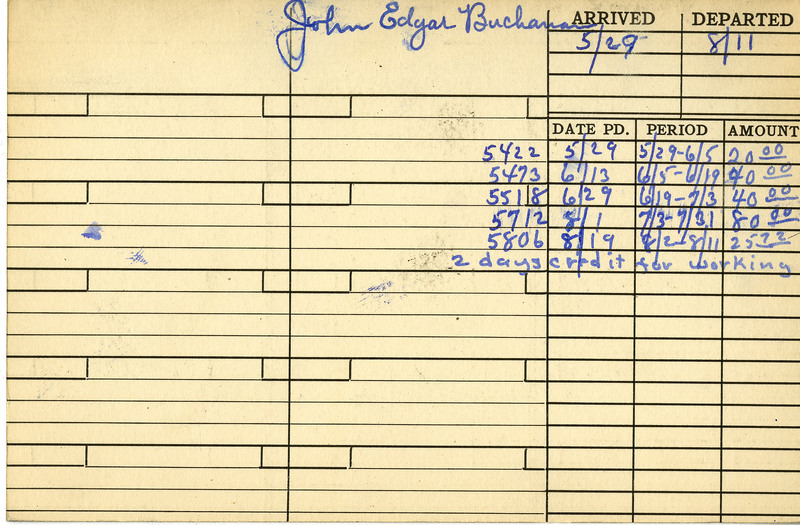 John Edgar Buchanan
ARRIVED DEPARTED
5/29 8/11
DATE PD. PERIOD AMOUNT
5422 5/29 5/29-6/5 20 00
5473 6/13 6/5-6/19 40 00
5518 6/29 6/19-7/3 40 00
5712 8/1 7/3-7/31 80 00
5806 8/19 8/2-8/11 25 72
2 days credit for working